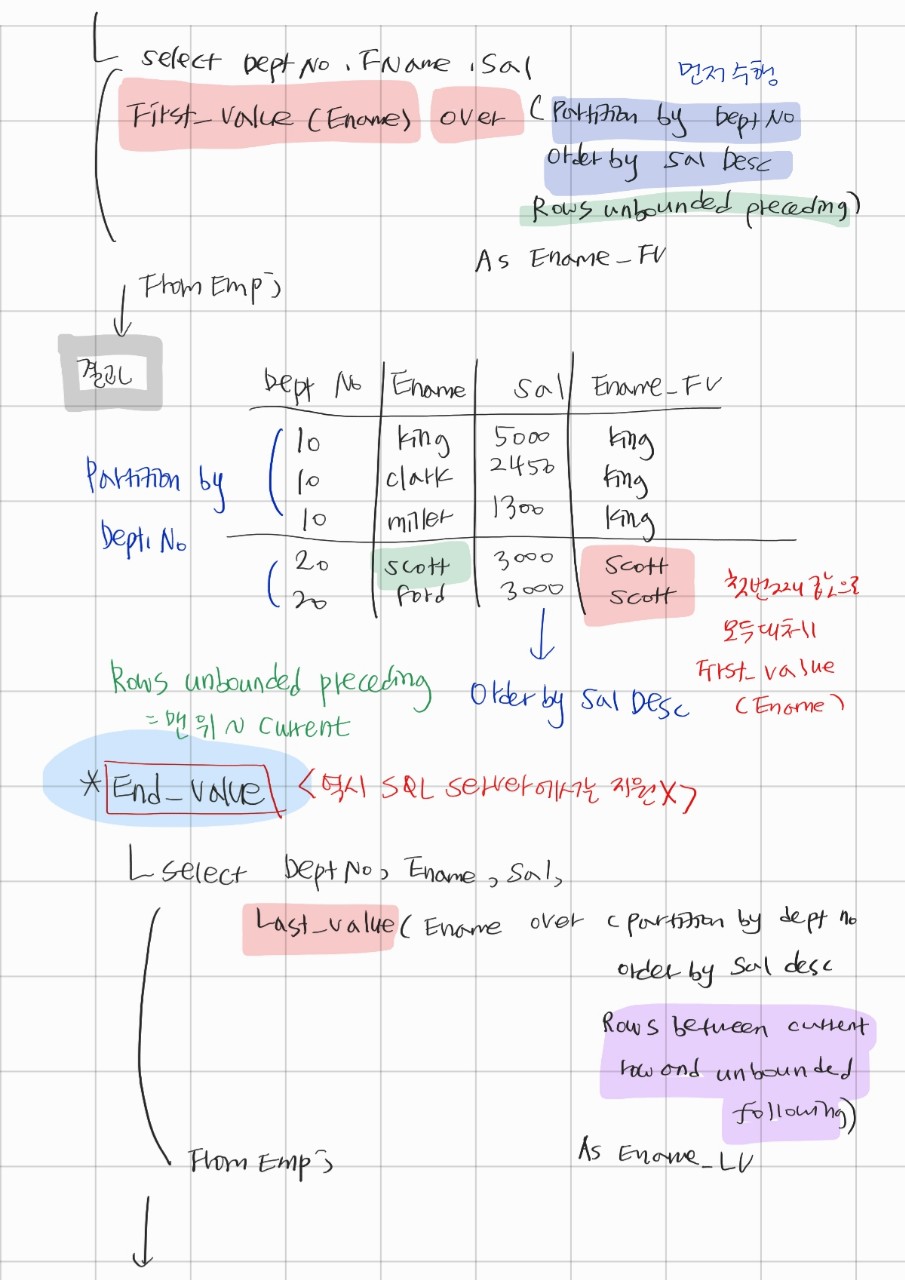 select Dept No, EName, Sal
먼저 수행
First_value (Ename) over (Partition by Dept No
Order by Sal Desc
Rows unbounded preceding)
As Ename_FV
From Emp;
결과
Dept No Ename Sal Ename_FV
10 king 5000 king
10 clark 2450 king
10 miller 1300 king
Partition by
Dept. No
20 scott 3000 scott
20 ford 3000 scott
첫번째 값으로
모두 대체!!
First_value
(Ename)
Rows unbounded preceding
= 맨 위 ~ current
Order by Sal Desc
* End_value <역시 SQL server에서는 지원X>
select Dept No, Ename, Sal,
Last_value (Ename over (partition by dept no
order by sal desc
Rows between current
row and unbounded
following)
As Ename_LV
From Emp;